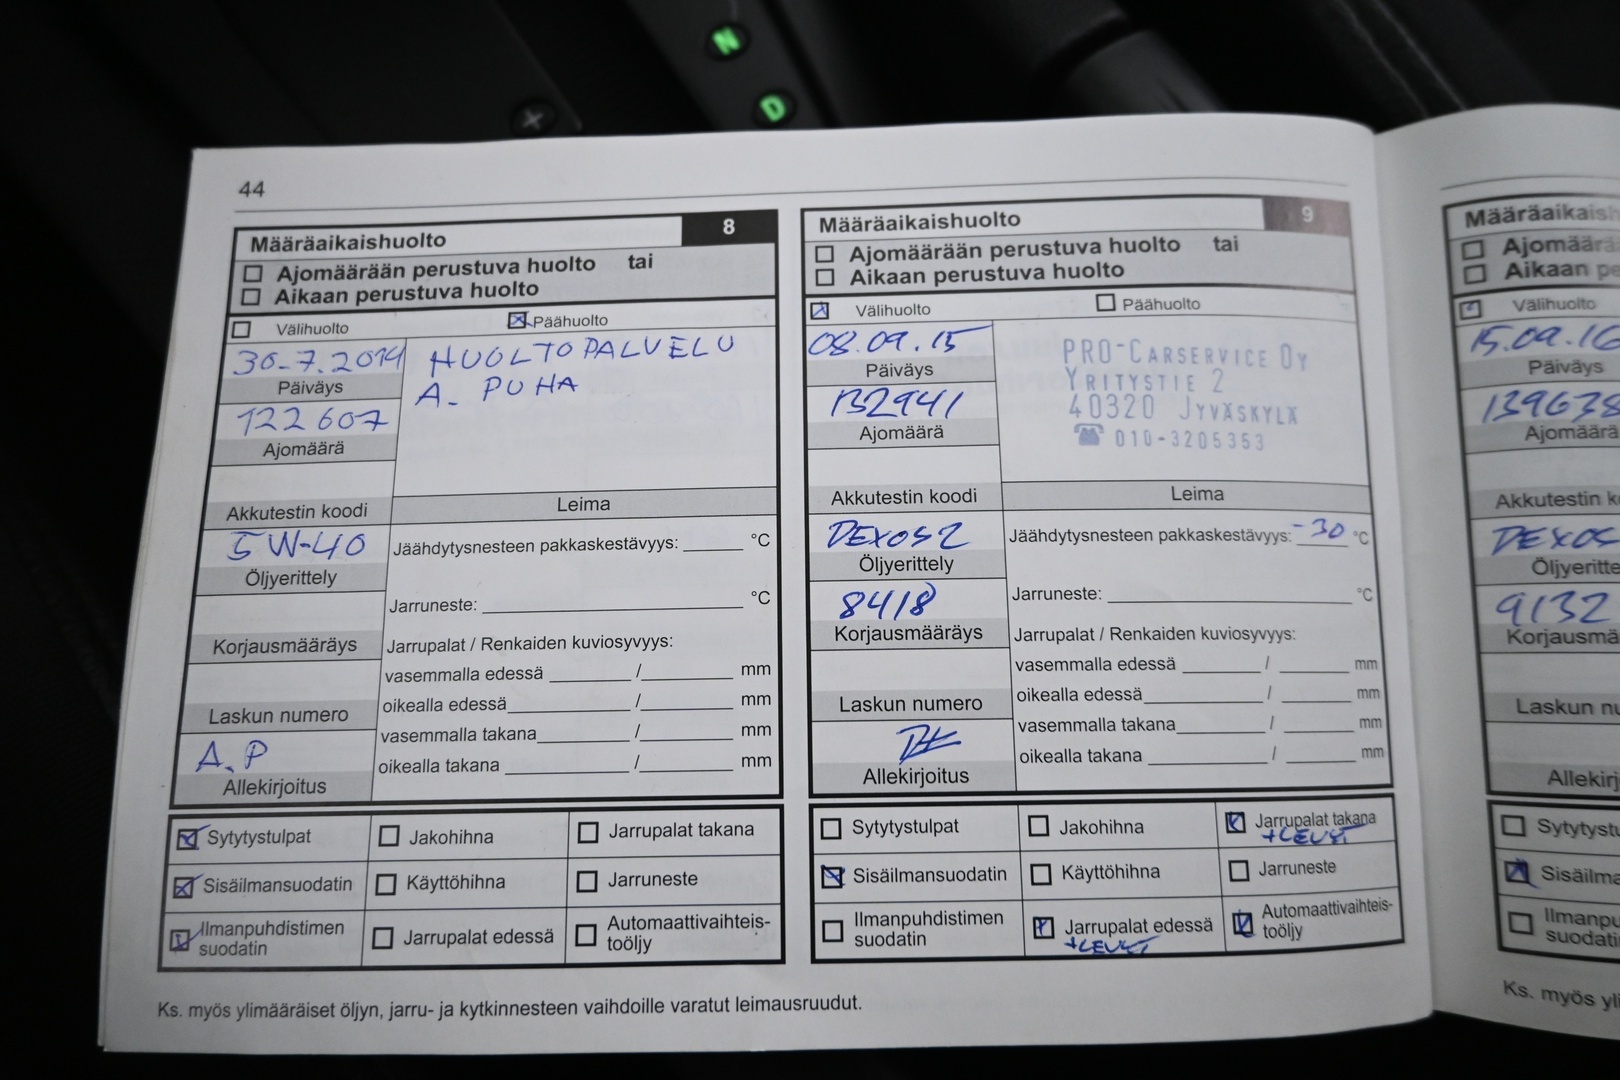 N
D
44
Määräaikaishuolto 8
Ajomäärään perustuva huolto tai
Aikaan perustuva huolto
Välihuolto Päähuolto
30-7.2014
Päiväys
HUOLTOPALVELU
A. PUHA
122607
Ajomäärä
Akkutestin koodi
Leima
5W-40
Öljyerittely
Korjausmääräys
Laskun numero
A.P
Allekirjoitus
Jäähdytysnesteen pakkaskestävyys: ______ °C
Jarruneste: ______ °C
Jarrupalat / Renkaiden kuviosyvyys:
vasemmalla edessä ______ / ______ mm
oikealla edessä ______ / ______ mm
vasemmalla takana ______ / ______ mm
oikealla takana ______ / ______ mm
Sytytystulpat Jakohihna Jarrupalat takana
Sisäilmansuodatin Käyttöhihna Jarruneste
Ilmanpuhdistimen
suodatin
Jarrupalat edessä
Automaattivaihteis-
toöljy
Määräaikaishuolto 9
Ajomäärään perustuva huolto tai
Aikaan perustuva huolto
Välihuolto Päähuolto
08.09.15
Päiväys
132941
Ajomäärä
PRO-CARSERVICE OY
YRITYSTIE 2
40320 JYVÄSKYLÄ
☎ 010-3205353
Akkutestin koodi
Leima
DEXOS2
Öljyerittely
8418
Korjausmääräys
Laskun numero
Allekirjoitus
Jäähdytysnesteen pakkaskestävyys: -30 °C
Jarruneste: ______ °C
Jarrupalat / Renkaiden kuviosyvyys:
vasemmalla edessä ______ / ______ mm
oikealla edessä ______ / ______ mm
vasemmalla takana ______ / ______ mm
oikealla takana ______ / ______ mm
Sytytystulpat Jakohihna Jarrupalat takana
+LEVYT
Sisäilmansuodatin Käyttöhihna Jarruneste
Ilmanpuhdistimen
suodatin
Jarrupalat edessä
+LEVYT
Automaattivaihteis-
toöljy
Ks. myös ylimääräiset öljyn, jarru- ja kytkinnesteen vaihdoille varatut leimausruudut.
Määräaikaish
Ajomäärä
Aikaan pe
Välihuolto
15.09.16
Päiväys
139638
Ajomäärä
Akkutestin k
DEXOS
Öljyeritte
9132
Korjausmä
Laskun nu
Allekirj
Sytytystu
Sisäilma
Ilmanpu
suodati
Ks. myös yli